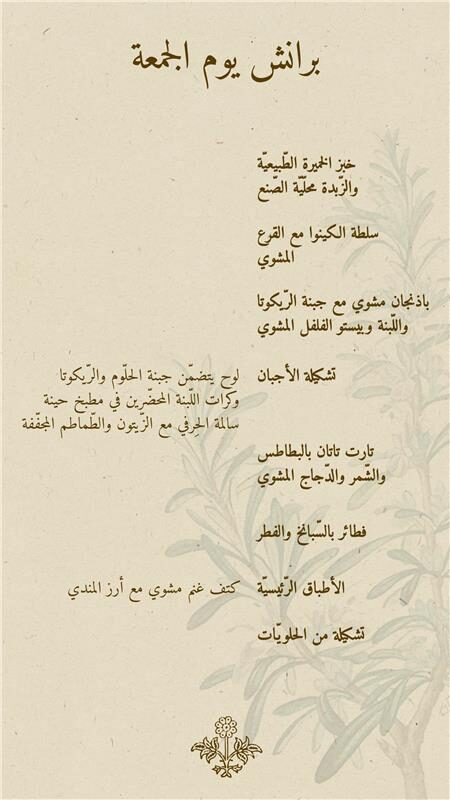 برانش يوم الجمعة
خبز الخميرة الطّبيعيّة
والزّبدة محلّيّة الصّنع
سلطة الكينوا مع القرع
المشوي
باذنجان مشوي مع جبنة الرّيكوتا
واللّبنة وبيستو الفلفل المشوي
تشكيلة الأجبان
لوح يتضمّن جبنة الحلّوم والرّيكوتا
وكرات اللّبنة المحضّرين في مطبخ حينة
سالمة الحِرفي مع الزّيتون والطّماطم المجفّفة
تارت تاتان بالبطاطس
والشّمر والدّجاج المشوي
فطائر بالسّبانخ والفطر
الأطباق الرّئيسيّة
كتف غنم مشوي مع أرز المندي
تشكيلة من الحلويّات